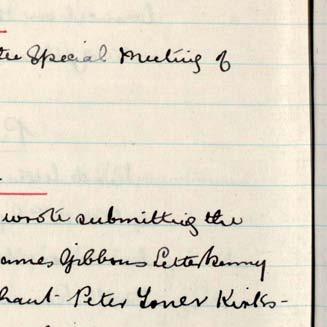 the Special Meeting of
wrote submitting the
James Gibbons Letterkenny
Peter Toner Kirks-